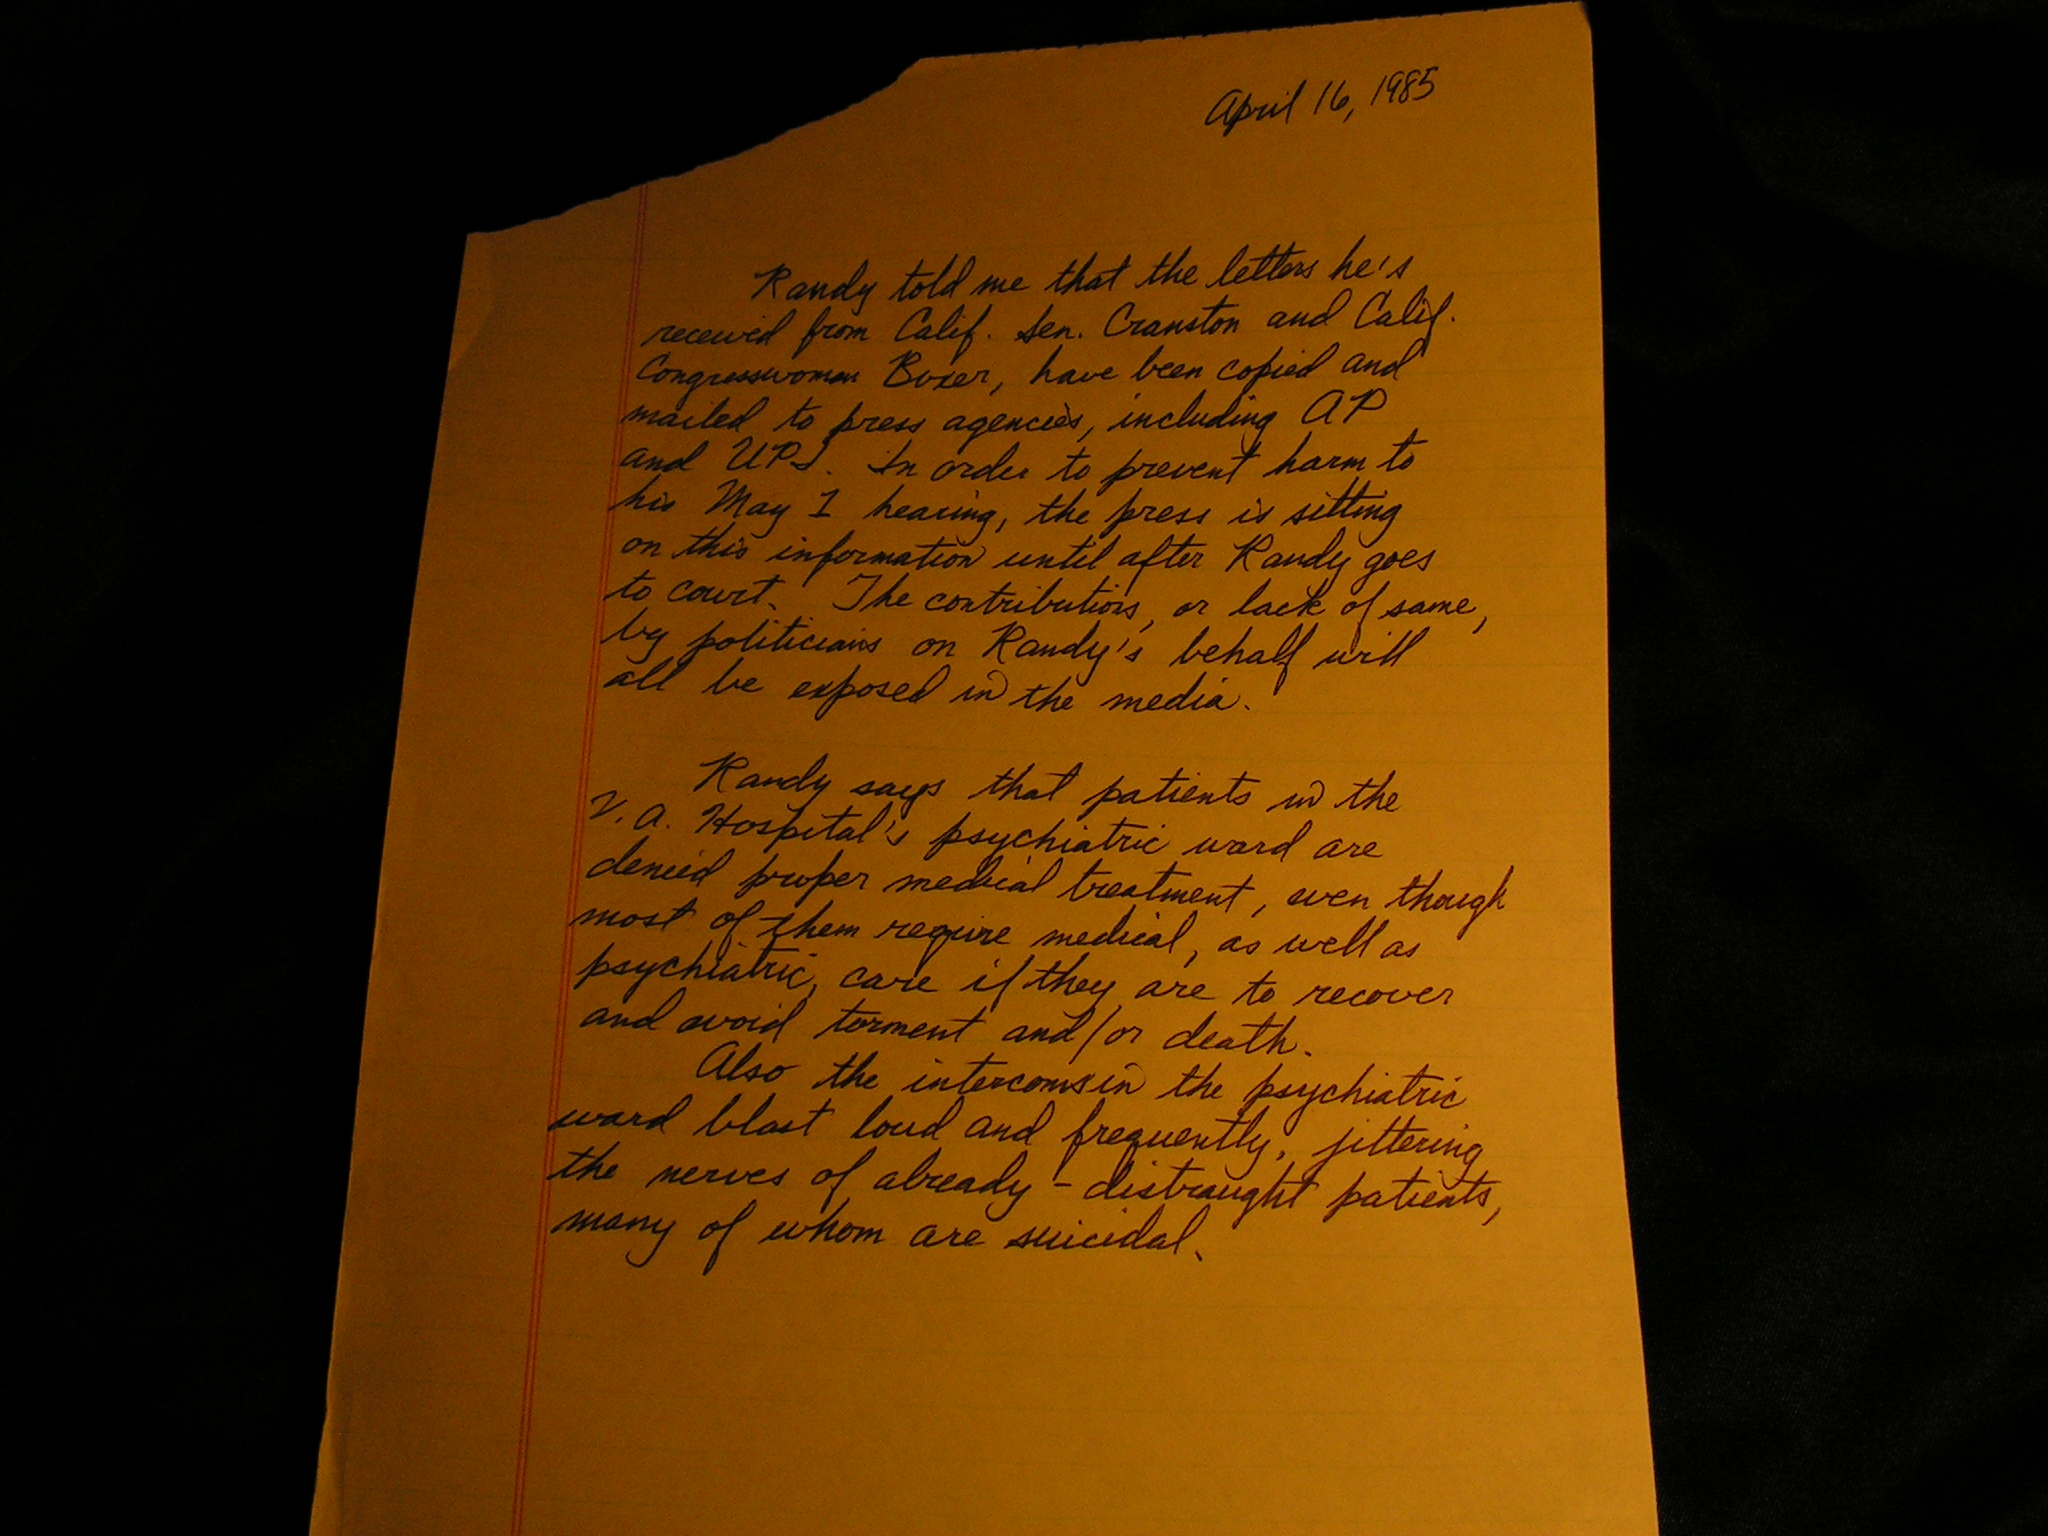 April 16, 1985
Randy told me that the letters he's
received from Calif. Sen. Cranston and Calif.
Congresswoman Boxer, have been copied and
mailed to press agencies, including AP
and UPI. In order to prevent harm to
his May 1 hearing, the press is sitting
on this information until after Randy goes
to court. The contributions, or lack of same,
by politicians on Randy's behalf will
all be exposed in the media.
Randy says that patients in the
V.A. Hospital's psychiatric ward are
denied proper medical treatment, even though
most of them require medical, as well as
psychiatric, care if they are to recover
and avoid torment and/or death.
Also the intercoms in the psychiatric
ward blast loud and frequently, jittering
the nerves of already-distraught patients,
many of whom are suicidal.